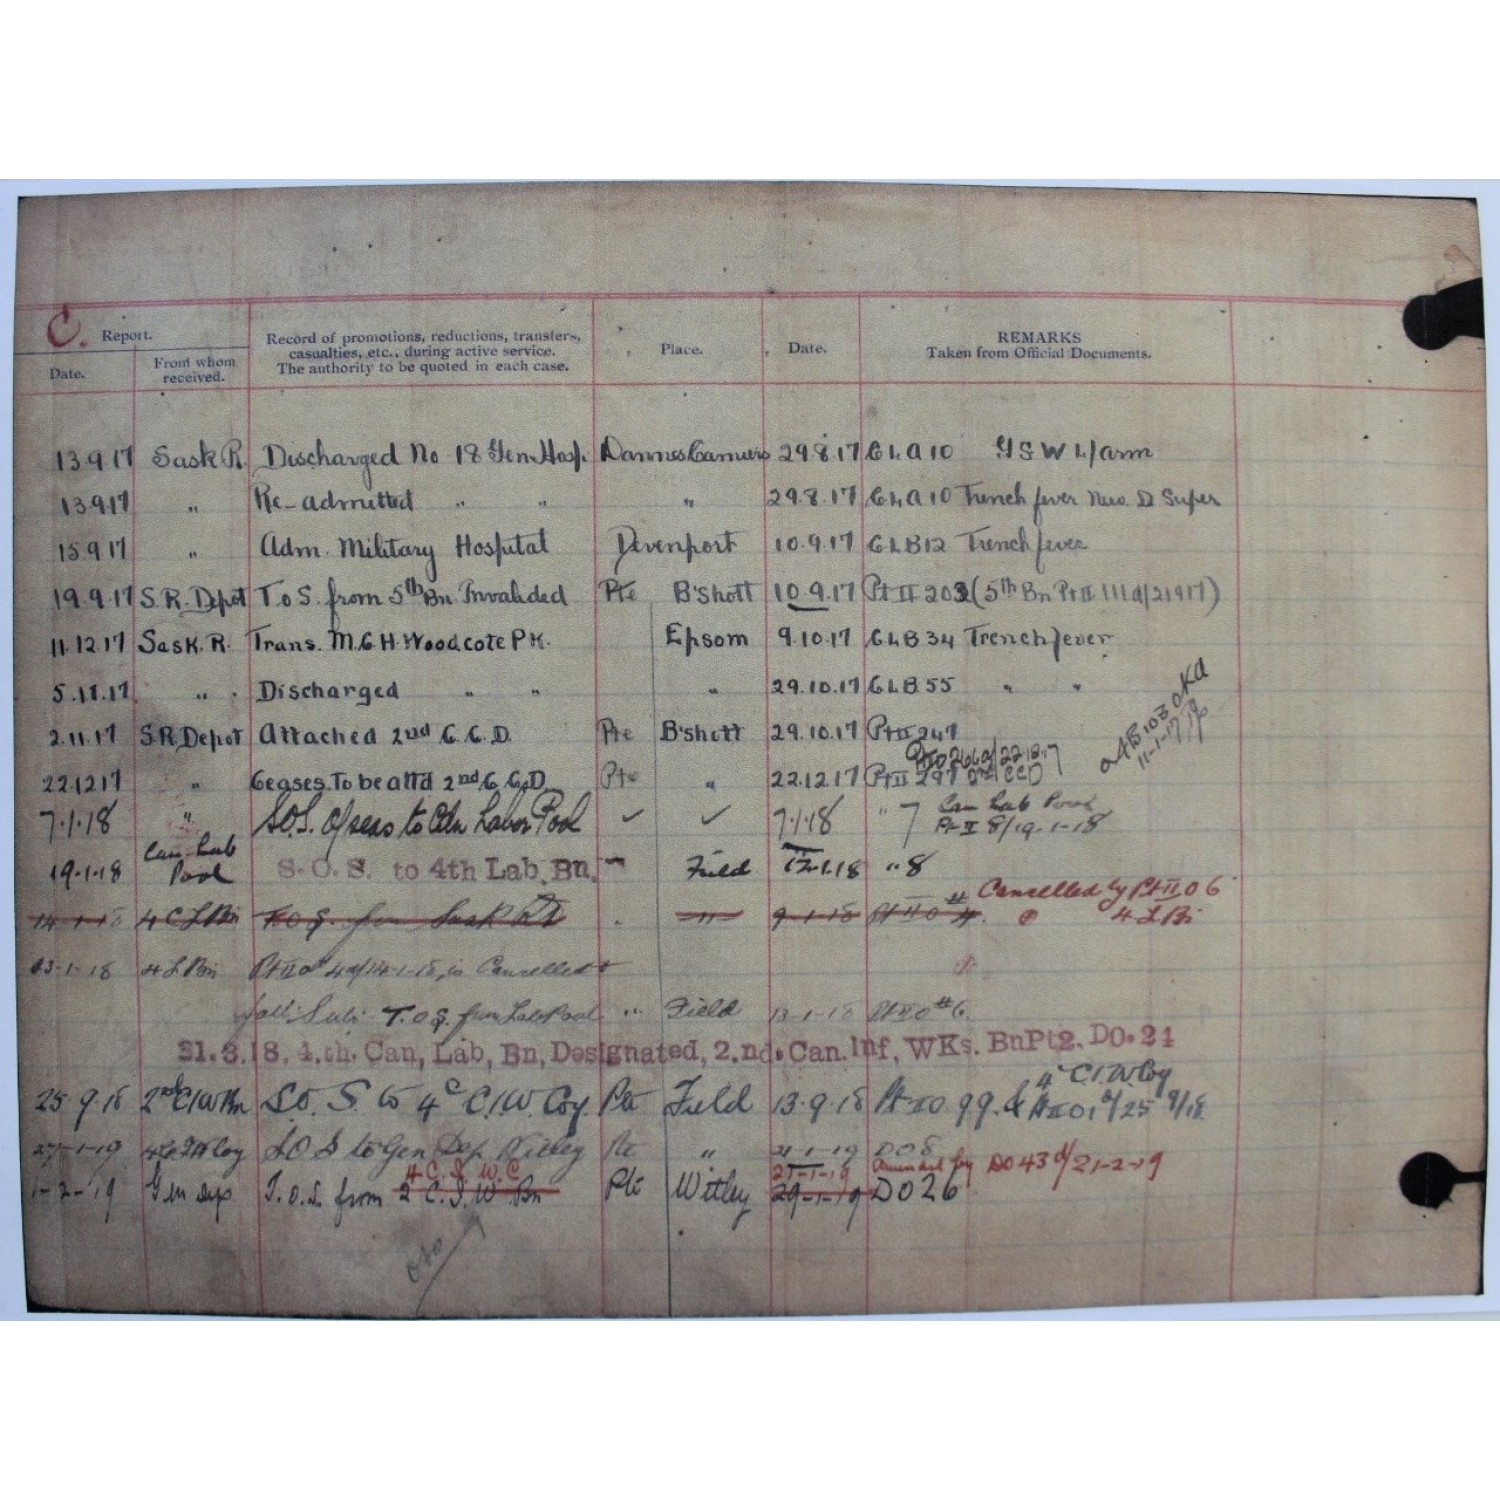 C. Report.
Date.
From whom received.
Record of promotions, reductions, transfers, casualties, etc., during active service. The authority to be quoted in each case.
Place.
Date.
REMARKS
Taken from Official Documents.
13.9.17 Sask R. Discharged No 18 Gen. Hosp. Dannes Camiers 29.8.17 C L A 10 G S W L/arm
13.9.17 " Re-admitted " " " 29.8.17 C L A 10 Trench fever
15.9.17 " Adm. Military Hospital Devenport 10.9.17 C L B 12 Trench fever
19.9.17 S.R. Depot T o S. from 5th Bn. Invalided Pte B'shott 10.9.17 Pt II 203 (5th Bn Pt II 111 d/21917)
11.12.17 Sask. R. Trans. M.C.H. Woodcote PK. Epsom 9.10.17 C L B 34 Trench fever
5.11.17 " Discharged " " " 29.10.17 C L B 55 " "
2.11.17 S.R. Depot Attached 2nd C.C.D. Pte B'shott 29.10.17 Pt II 247
22.12.17 " Ceases To be att'd 2nd C.C.D. Pte " 22.12.17 Pt II 297
7.1.18 " S.O.S. o/seas to Cdn Labor Pool ✓ ✓ 7.1.18 " 7 Can Lab Pool
Pt II 8/19-1-18
19.1.18 Can Lab Pool S.O.S. to 4th Lab. Bn. " Field 12.1.18 " 8
Cancelled by Pt II O 6
4 L Bn
14-1-18 4 C L Bn T O S. from Sask Rt " 9-1-18 Pt II O 4.
13-1-18 4 L Bn Pt II O 4 d/14-1-18, is Cancelled +
T.O.S. from Lab Pool " Field 13-1-18 Pt II O #6.
21.3.18. 4.th. Can, Lab, Bn, Designated, 2.nd. Can. Inf, WKs. Bn Pt2. DO. 21
25.9.18 2nd C I W Bn S.O.S. to 4th C.I.W. Coy. Pte Field 13.9.18 Pt II O 99. & 4th C.I.W. Coy
Pt II O 1 d/25 9/18
27-1-19 S O S to Gen Dep Witley Pte " 21-1-19 D O 8
4 C. I. W. C 21-1-19 Amended by DO 43 d/21-2-19
1-2-19 Gen Dep T.O.S. from 2 C.I.W. Bn Pte Witley 29-1-19 D O 26